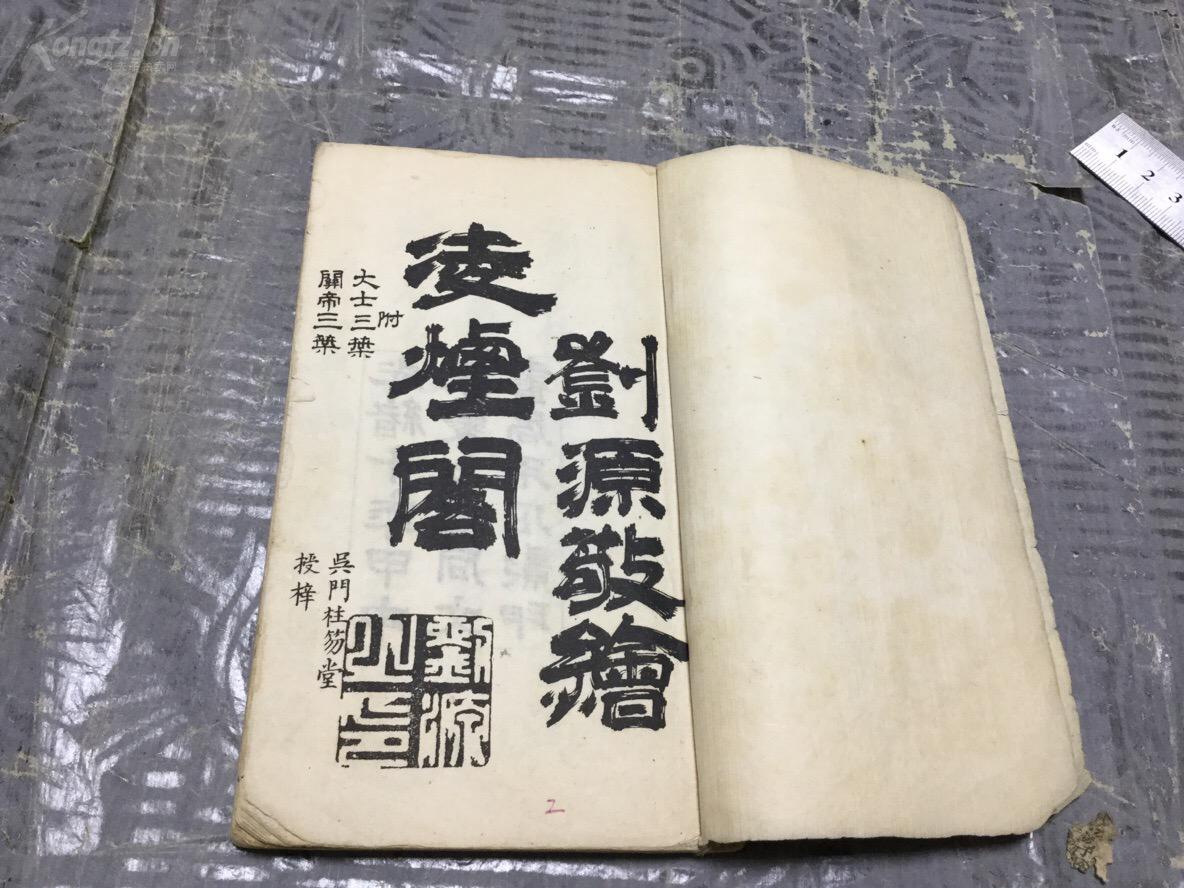 劉源敬繪
凌煙閣
附
大士三葉
關帝三葉
吳門柱笏堂
授梓
劉源之印
2
1 2 3